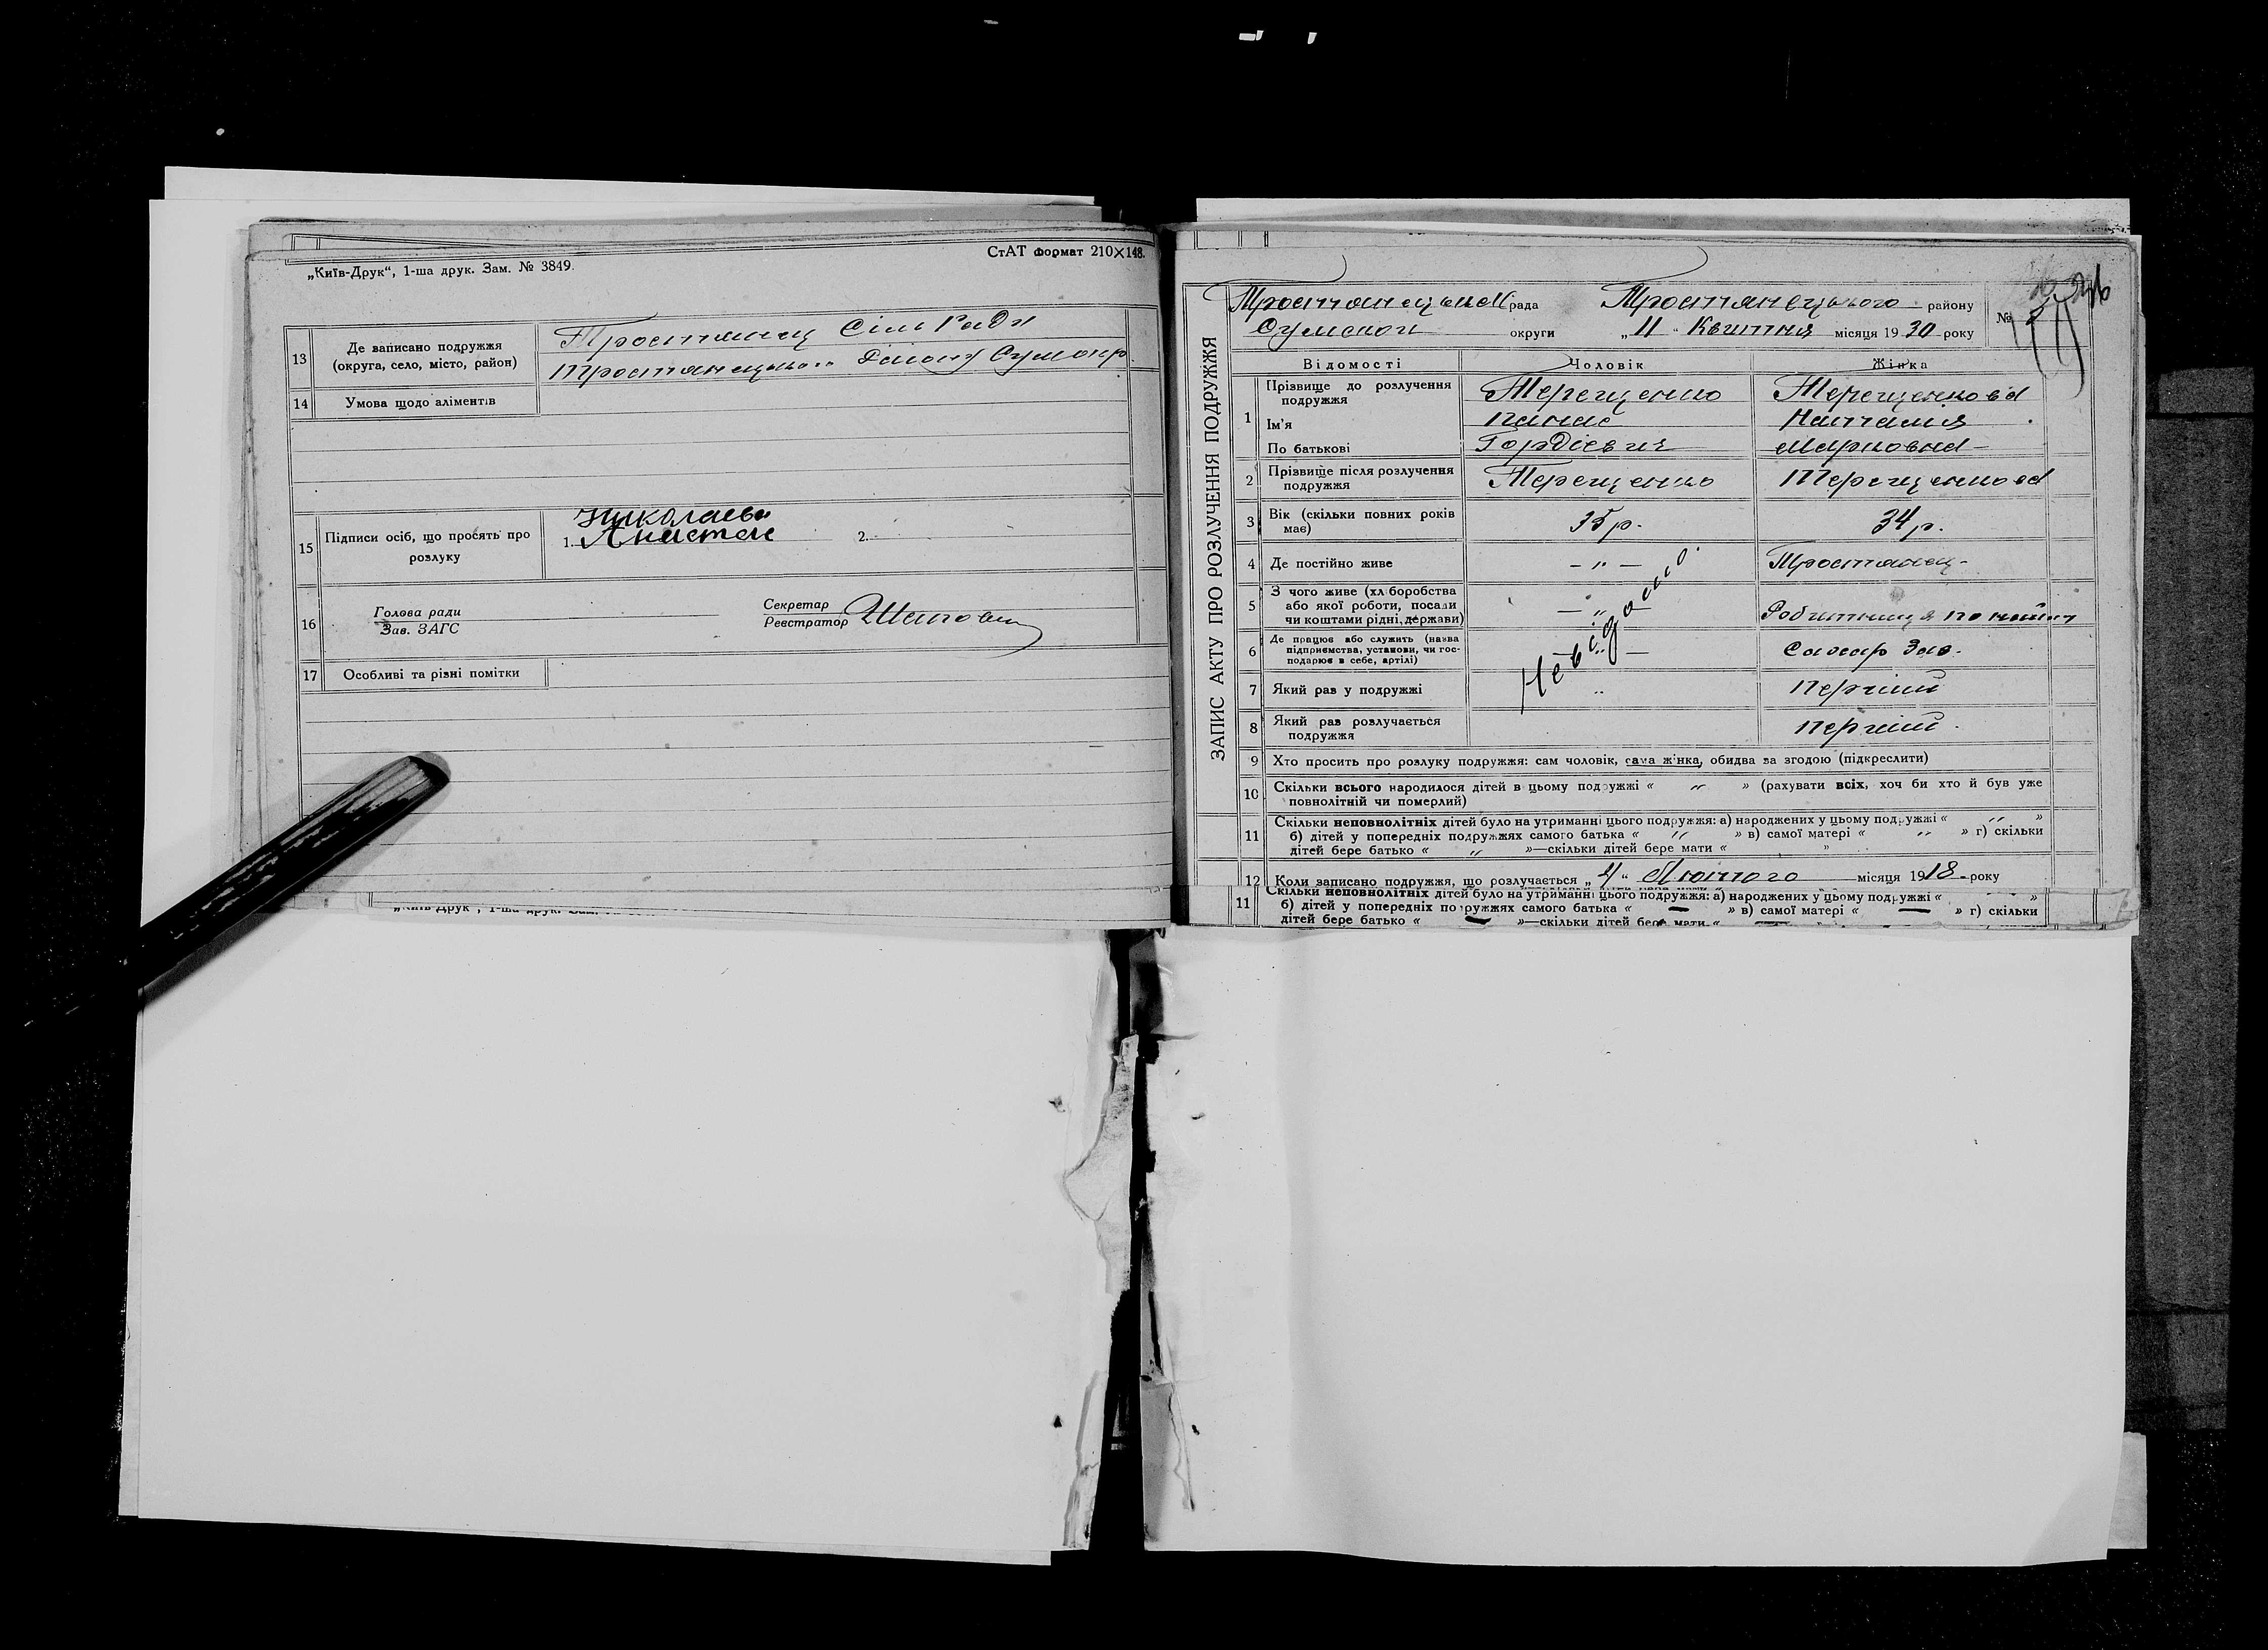 „Київ-Друк“, 1-ша друк. Зам. № 3849.
СтАТ формат 210✕148.
13 Де записано подружжя (округа, село, місто, район)
Тростянец Сіль Ради
Тростянецького Району Сумокр.
14 Умова щодо аліментів
15 Підписи осіб, що просять про розлуку
1. 2.
16 Голова ради
Зав. ЗАГС
Секретар
Реєстратор
17 Особливі та різні помітки
ЗАПИС АКТУ ПРО РОЗЛУЧЕННЯ ПОДРУЖЖЯ
рада Тростянецького району
Сумской округи „11“ Квитня місяця 1930 року
№
Відомості Чоловік Жінка
1 Прізвище до розлучення подружжя Терещенко Терещенкова
Ім'я Панас Наталія
По батькові Гордієвич Марковна
2 Прізвище після розлучення подружжя Терещенко Терещенкова
3 Вік (скільки повних років має) 35 р. 34 р.
4 Де постійно живе — „ — Тростянец
5 З чого живе (хліборобства
або якої роботи, посади
чи коштами рідні, держави) — „ — Робитниця по найму
6 Де працює або служить (назва
підприємства, установи, чи гос-
подарює в себе, артілі) — „ — Сахар Зав.
Невідомо
7 Який раз у подружжі „ Перший
8 Який раз розлучається подружжя Перший
9 Хто просить про розлуку подружжя: сам чоловік, сама жінка, обидва за згодою (підкреслити)
10 Скільки всього народилося дітей в цьому подружжі « „ » (рахувати всіх, хоч би хто й був уже
повнолітній чи померлий)
11 Скільки неповнолітніх дітей було на утриманні цього подружжя: а) народжених у цьому подружжі « „ »
б) дітей у попередніх подружжях самого батька « „ » в) самої матері « „ » г) скільки
дітей бере батько « „ »—скільки дітей бере мати « »
12 Коли записано подружжя, що розлучається Лютого місяця 1918 року
11 Скільки неповнолітніх дітей було на утриманні цього подружжя: а) народжених у цьому подружжі « »
б) дітей у попередніх подружжях самого батька « — » в) самої матері « — » г) скільки
дітей бере батько « — »—скільки дітей бере мати «